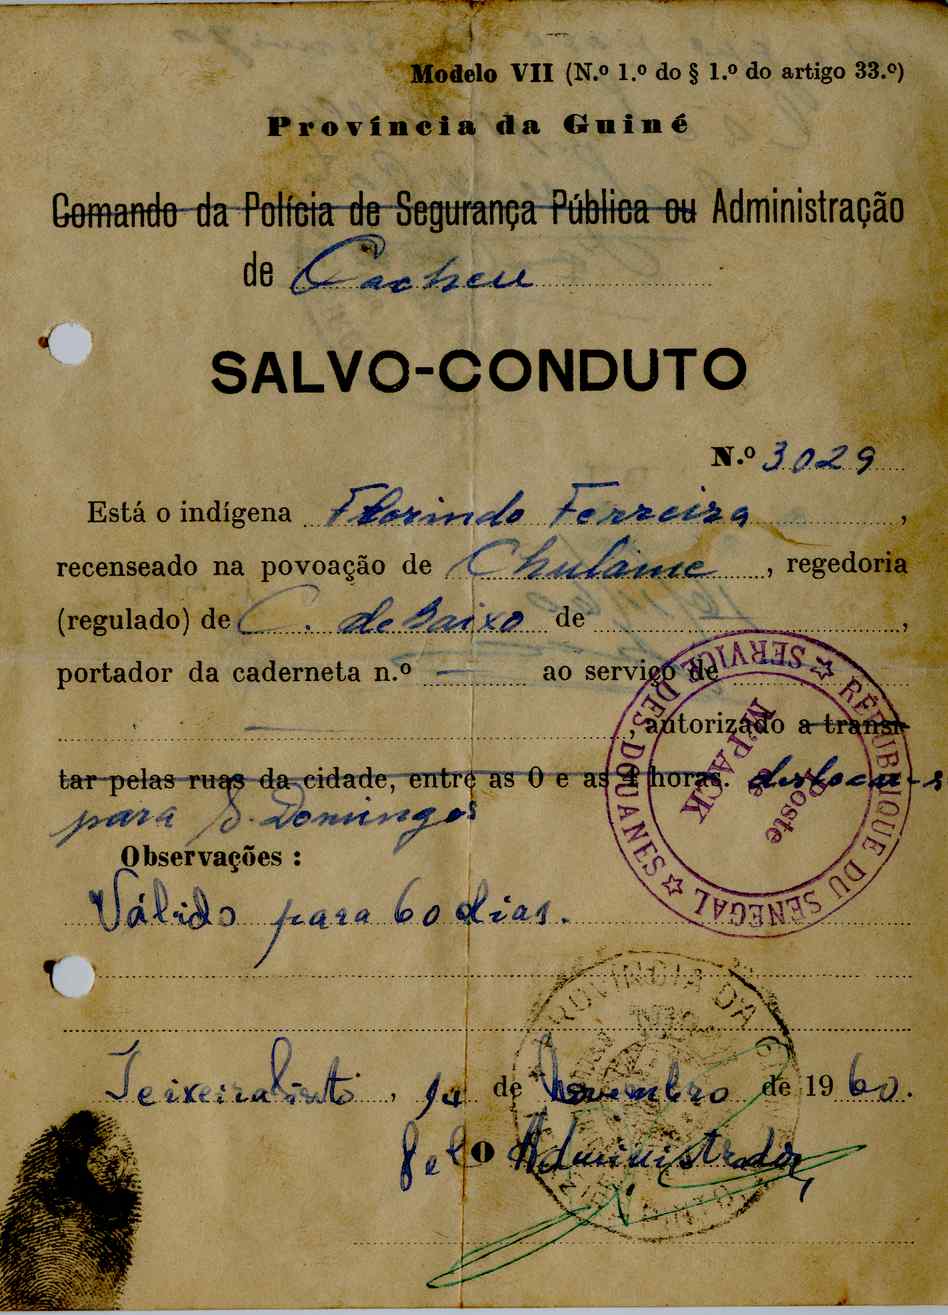 Modelo VII (N.º 1.º do § 1.º do artigo 33.º)
Província da Guiné
Comando da Polícia de Segurança Pública ou Administração
de Cacheu
SALVO-CONDUTO
N.º 3029
Está o indígena Florindo Ferreira,
recenseado na povoação de Chulame, regedoria
(regulado) de C. de Baixo de ,
portador da caderneta n.º — ao serviço de
— , autorizado a transi-
tar pelas ruas da cidade, entre as 0 e as 4 horas. deslocar-s
para S. Domingos
Observações :
Válido para 60 dias.
Teixeira Pinto, de Novembro de 1960.
Pelo Administrador,
RÉPUBLIQUE DU SENEGAL
SERVICE DES DOUANES
Poste de
M'PACK
PROVINCIA DA G